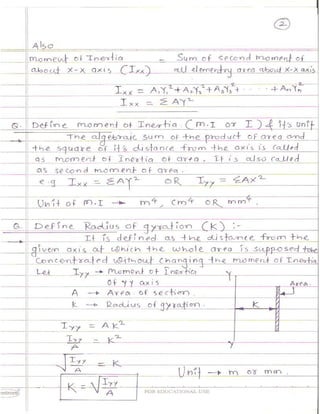 2
Also
moment of Inertia = Sum of second moment of
about X-X axis (Ixx) all elementary area about X-X axis
Ixx = A₁Y₁² + A₂Y₂² + A₃Y₃² + - - - - + AnYn²
Ixx = ΣAY²
Q. Define moment of Inertia (M.I or I) & it's unit
→ The algebraic sum of the product of area and
the square of it's distance from the axis is called
as moment of Inertia of area. It is also called
as second moment of area.
e.g Ixx = ΣAY² OR Iyy = ΣAX²
Unit of M.I → m⁴, cm⁴ OR mm⁴.
Q. Define Radius of gyration (K) :-
→ It is defined as the distance from the
given axis at which the whole area is supposed to be
concentrated without changing the moment of Inertia
Let Iyy → Moment of Inertia Y
Of YY axis Area.
A → Area of section.
K → Radius of gyration. K
Iyy = AK²
Iyy/A = K²
√Iyy/A = K Y
Unit → m or mm.
K = √Iyy/A
FOR EDUCATIONAL USE